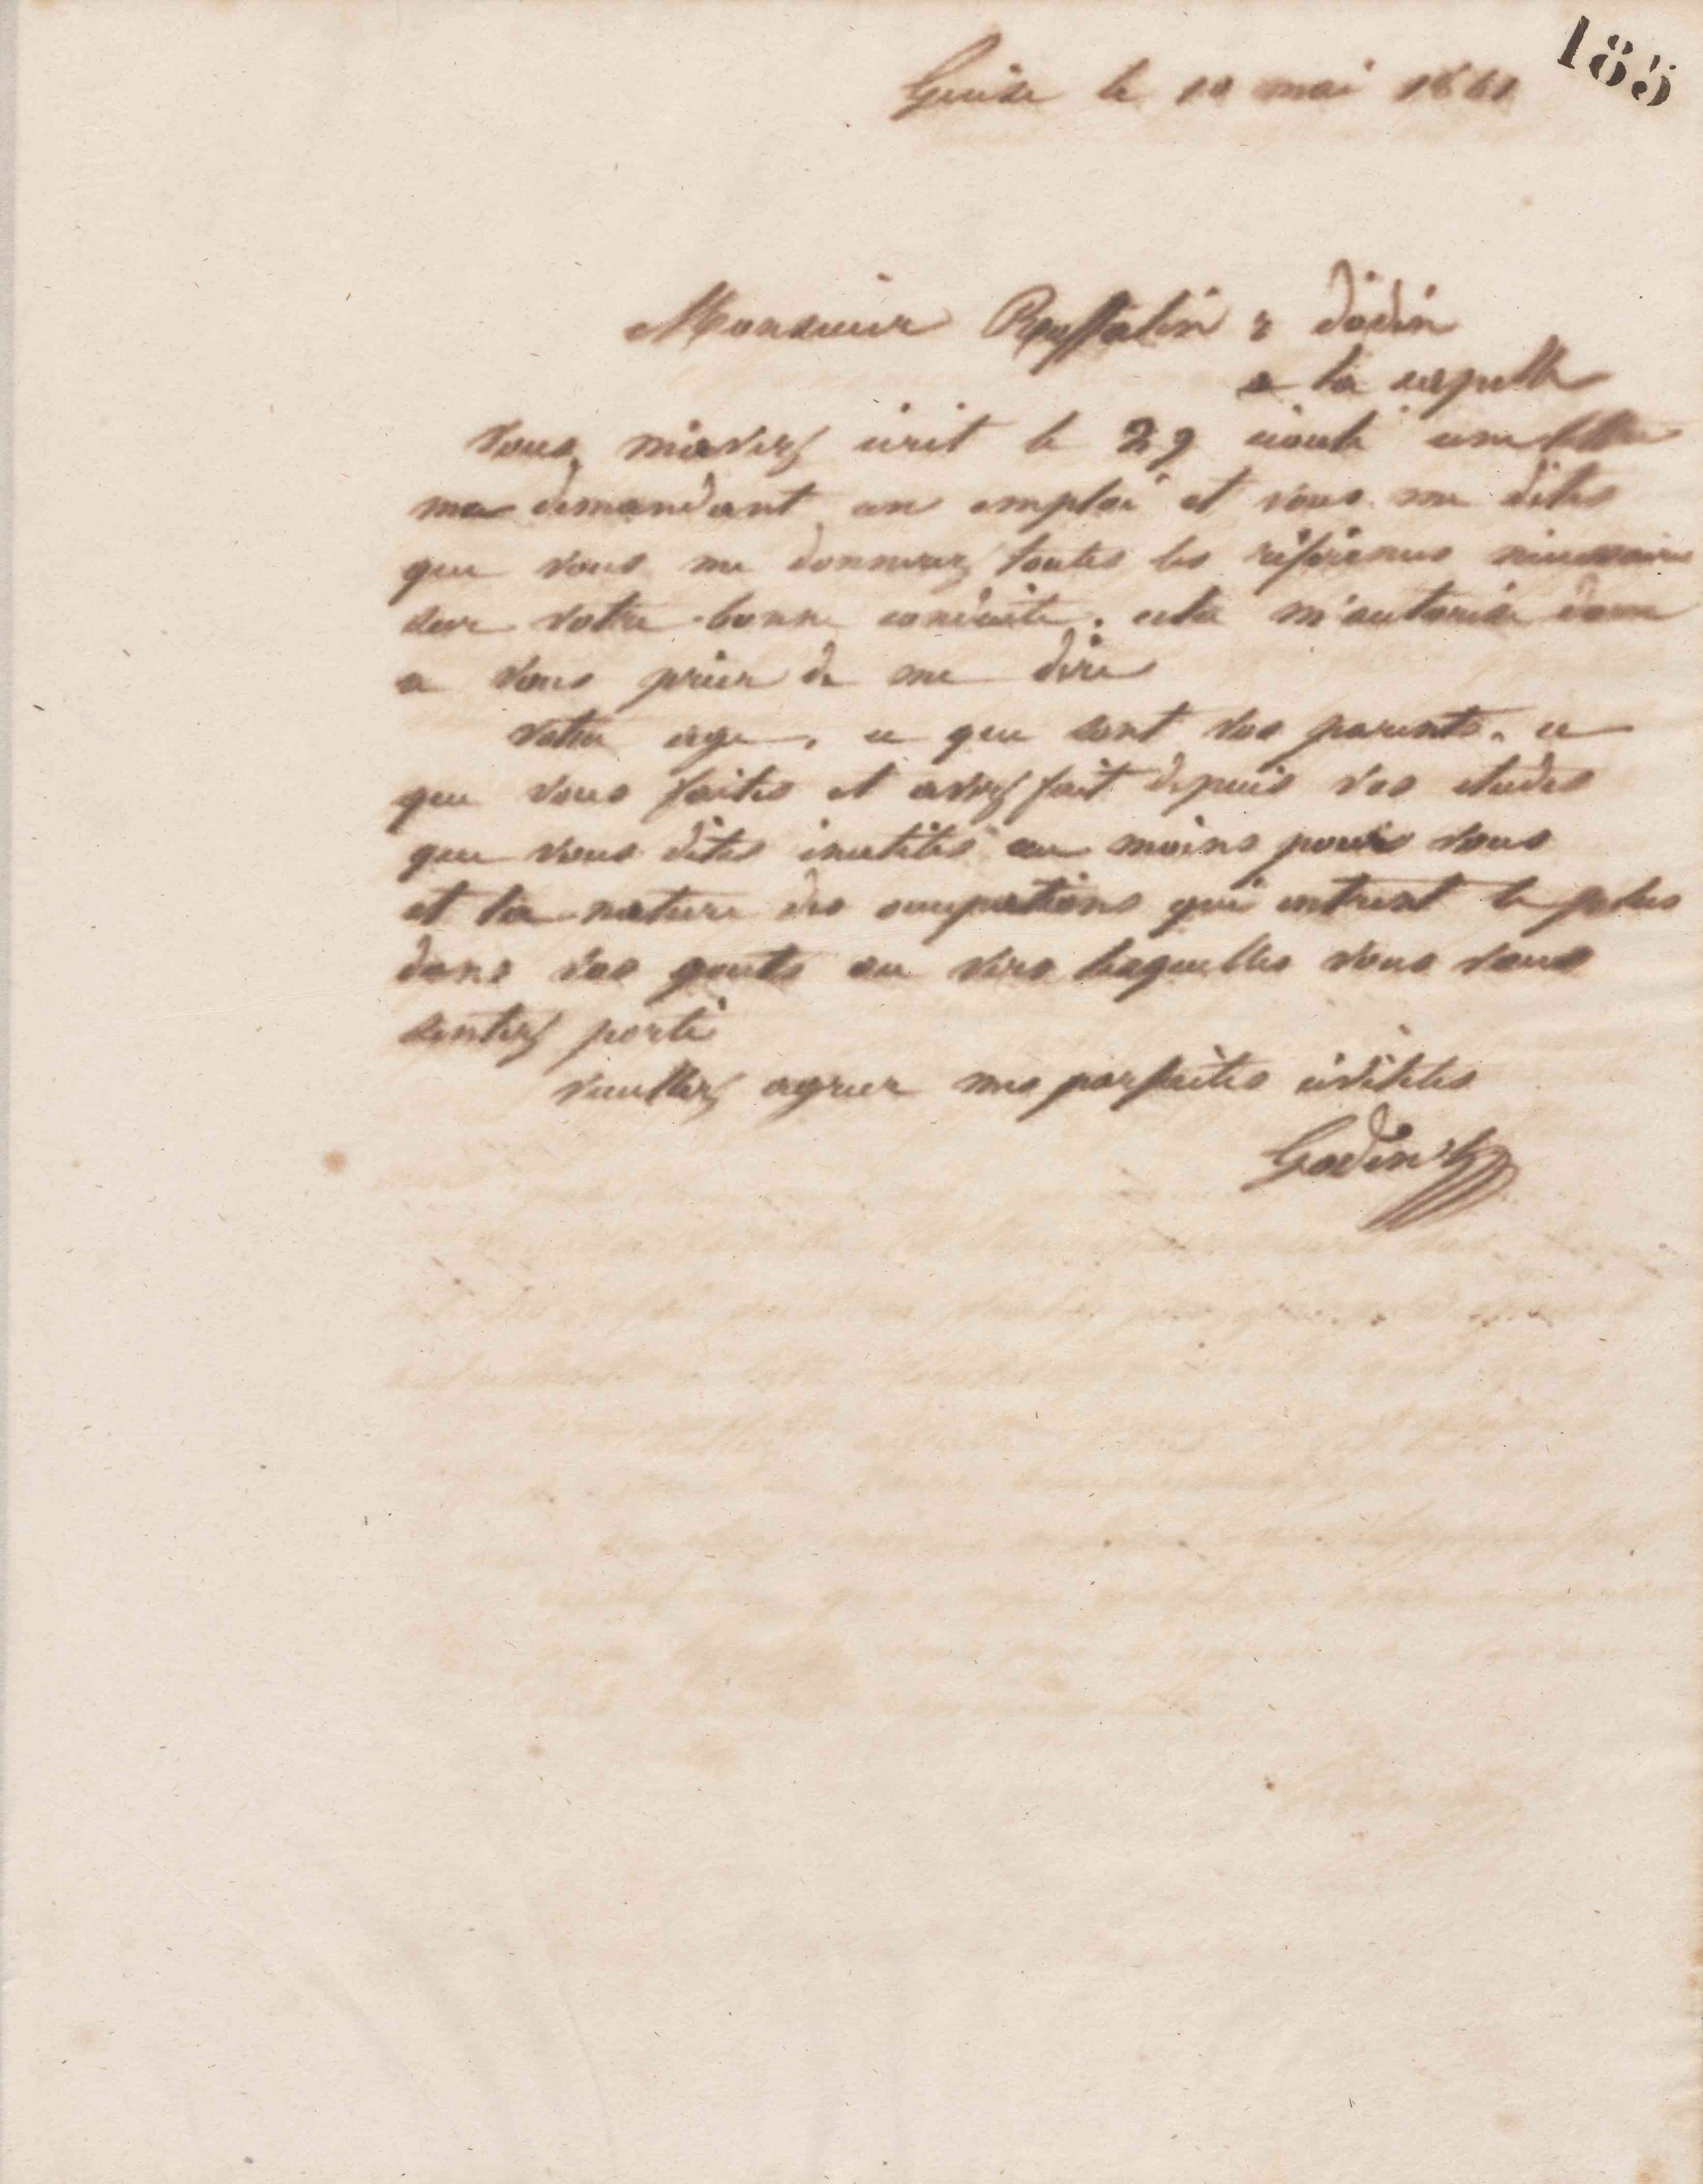 185
Guise le 10 mai 1861
Monsieur Dodin
a la capelle
Vous m'avez écrit le 29 écoulé une lettre
me demandant un emploi et vous me dites
que vous me donnerez toutes les références nécessaires
sur votre bonne conduite. cela m'autorise donc
a vous prier de me dire
votre age, ce que sont vos parents, ce
que vous faites et avez fait depuis vos etudes
que vous dites inutiles au moins pour vous
et la nature des occupations qui entrent le plus
dans vos gouts ou vers lesquelles vous vous
sentez porté
veuillez agreer mes parfaites civilités
Godin